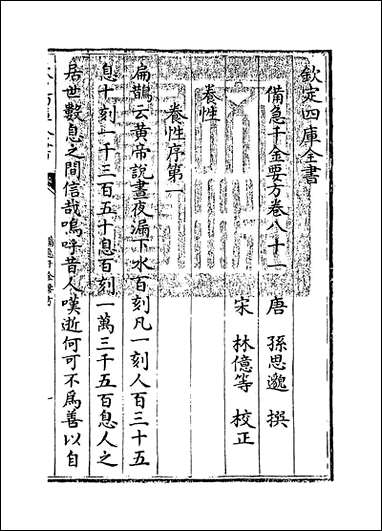 欽定四庫全書
備急千金要方卷八十一
唐 孫思邈 撰
宋 林億等 校正
養性
養性序第一
扁鵲云黄帝説晝夜漏下水百刻凡一刻人百三十五
息十刻一千三百五十息百刻一萬三千五百息人之
居世數息之間信哉嗚呼昔人嘆逝何可不爲善以自